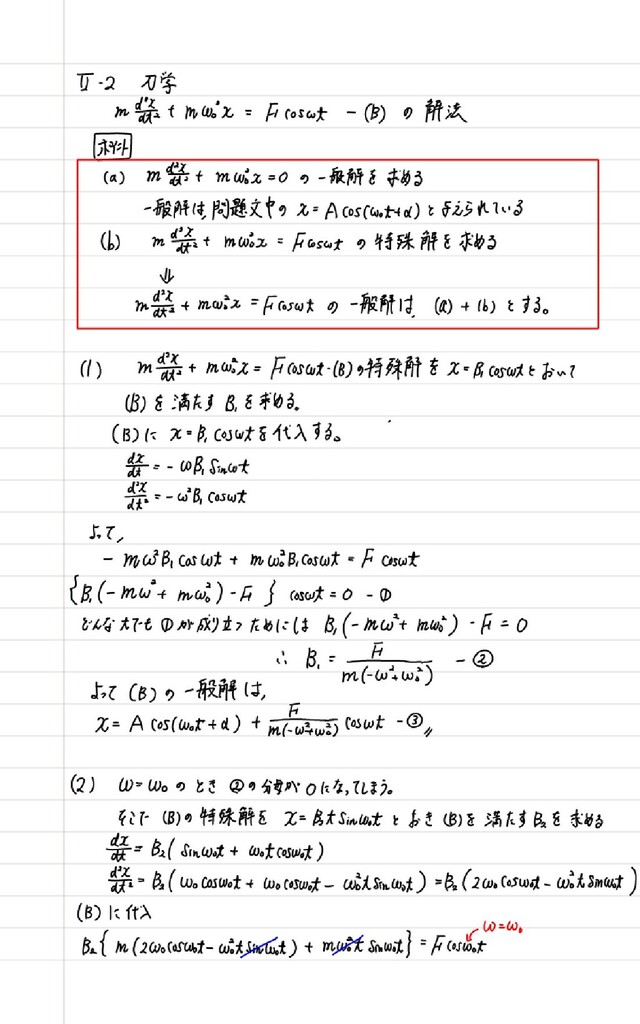 II-2 力学
m d²x/dt² + mω₀²x = F cosωt - (B) の解法
ポイント
(a) m d²x/dt² + mω₀²x = 0 の一般解を求める
一般解は,問題文中の x = A cos(ω₀t+α) と与えられている
(b) m d²x/dt² + mω₀²x = F cosωt の特殊解を求める
⇓
m d²x/dt² + mω₀²x = F cosωt の一般解は, (a) + (b) とする。
(1) m d²x/dt² + mω₀²x = F cosωt -(B)の特殊解を x = B₁ cosωt とおいて
(B) を満たす B₁ を求める。
(B) に x = B₁ cosωt を代入する。
dx/dt = - ωB₁ sinωt
d²x/dt² = - ω²B₁ cosωt
よって,
- mω²B₁ cosωt + mω₀²B₁ cosωt = F cosωt
{B₁(-mω² + mω₀²) - F} cosωt = 0 - ①
どんな t でも ① が成り立つためには B₁(-mω² + mω₀²) - F = 0
∴ B₁ = F/m(-ω²+ω₀²) - ②
よって (B) の一般解は,
x = A cos(ω₀t+α) + F/m(-ω²+ω₀²) cosωt - ③〃
(2) ω = ω₀ のとき ② の分母が 0 になってしまう。
そこで (B)の特殊解を x = B₂t sinω₀t とおき (B)を満たす B₂ を求める
dx/dt = B₂( sinω₀t + ω₀t cosω₀t)
d²x/dt² = B₂( ω₀ cosω₀t + ω₀ cosω₀t - ω₀²t sinω₀t) = B₂( 2ω₀ cosω₀t - ω₀²t sinω₀t)
(B) に代入
ω=ω₀
B₂{ m (2ω₀ cosω₀t - ω₀²t sinω₀t) + mω₀²t sinω₀t} = F cosω₀t